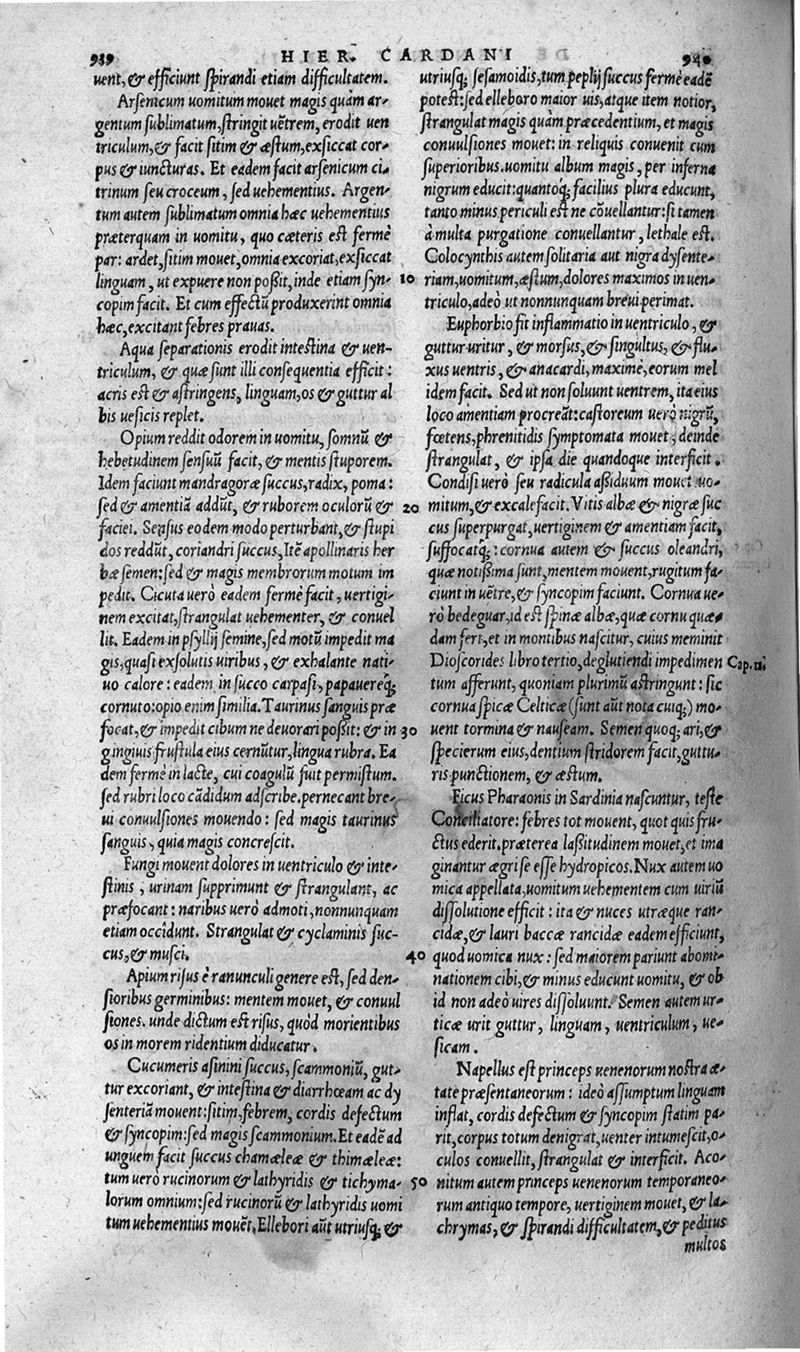 939 HIER. CARDANI 940
uent, & efficiunt spirandi etiam difficultatem.
Arsenicum uomitum mouet magis quàm ar-
gentum sublimatum, stringit uētrem, erodit uen
triculum, & facit sitim & æstum, exsiccat cor-
pus & iuncturas. Et eadem facit arsenicum ci-
trinum seu croceum, sed uehementius. Argen-
tum autem sublimatum omnia hæc uehementius
præterquam in uomitu, quo cæteris est fermè
par: ardet, sitim mouet, omnia excoriat, exsiccat
linguam, ut expuere non possit, inde etiam syn- 10
copim facit. Et cum effectū produxerint omnia
hæc, excitant febres prauas.
Aqua separationis erodit intestina & uen-
triculum, & quæ sunt illi consequentia efficit:
acris est & astringens, linguam, os & guttur al
bis uesicis replet.
Opium reddit odorem in uomitu, somnū &
hebetudinem sensuū facit, & mentis stuporem.
Idem faciunt mandragoræ succus, radix, poma:
sed & amentiā addūt, & ruborem oculorū & 20
faciei. Sensus eodem modo perturbant, & stupi
dos reddūt, coriandri succus, Itē apollinaris her
bæ semen: sed & magis membrorum motum im
pedit. Cicuta uerò eadem fermè facit, uertigi-
nem excitat, strangulat uehementer, & conuel
lit. Eadem in psyllij semine, sed motū impedit ma
gis, quasi exsolutis uiribus, & exhalante nati-
uo calore: eadem in succo carpasi, papauereq́;
cornuto: opio enim similia. Taurinus sanguis præ
focat, & impedit cibum ne deuorari possit: & in 30
gingiuis frustula eius cernūtur, lingua rubra. Ea
dem fermè in lacte, cui coagulū fuit permistum.
sed rubri loco cādidum adscribe. pernecant bre-
ui conuulsiones mouendo: sed magis taurinus
sanguis, quia magis concrescit.
Fungi mouent dolores in uentriculo & inte-
stinis, urinam supprimunt & strangulant, ac
præfocant: naribus uerò admoti, nonnunquam
etiam occîdunt. Strangulat & cyclaminis suc-
cus, & musci. 40
Apium risus è ranunculi genere est, sed den-
sioribus germinibus: mentem mouet, & conuul
siones. unde dictum est risus, quòd morientibus
os in morem ridentium diducatur.
Cucumeris asinini succus, scammoniū, gut-
tur excoriant, & intestina & diarrhœam ac dy
senteriā mouent: sitim, febrem, cordis defectum
& syncopim: sed magis scammonium. Et eadē ad
unguem facit succus chamæleæ & thimæleæ:
tum uero rucinorum & lathyridis & tichyma- 50
lorum omnium: sed rucinorū & lathyridis uomi
tum uehementius mouēt, Ellebori aūt utriusq; &
utriusq; sesamoidis, tum peplij succus fermè eadē
potest: sed elleboro maior uis, atque item notior,
strangulat magis quàm præcedentium, et magis
conuulsiones mouet: in reliquis conuenit cum
superioribus. uomitu album magis, per inferna
nigrum educit: quantoq́; facilius plura educunt,
tanto minus periculi est ne cōuellantur: si tamen
à multa purgatione conuellantur, lethale est.
Colocynthis autem solitaria aut nigra dysente-
riam, uomitum, æstum, dolores maximos in uen-
triculo, adeò ut nonnunquam breui perimat.
Euphorbio fit inflammatio in uentriculo, &
guttur uritur, & morsus, & singultus, & flu-
xus uentris, & anacardi, maximè, eorum mel
idem facit. Sed ut non soluunt uentrem, ita eius
loco amentiam procreāt: castoreum uerò nigrū,
fœtens, phrenitidis symptomata mouet, deinde
strangulat, & ipsa die quandoque interficit.
Condisi uerò seu radicula assiduum mouet uo-
mitum, & excalefacit. Vitis albæ & nigræ suc
cus superpurgat, uertiginem & amentiam facit,
suffocatq́;: cornua autem & succus oleandri,
quæ notissima sunt, mentem mouent, rugitum fa-
ciunt in uētre, & syncopim faciunt. Cornua ue-
rò bedeguar, id est spinæ albæ, quæ cornu quæ
dam fert, et in montibus nascitur, cuius meminit
Dioscorides libro tertio, deglutiendi impedimen Cap.
tum afferunt, quoniam plurimū astringunt: sic
cornua spicæ Celticæ (sunt aūt nota cuiq;) mo-
uent tormina & nauseam. Semen quoq; ari, &
specierum eius, dentium stridorem facit, guttu-
ris punctionem, & æstum.
Ficus Pharaonis in Sardinia nascuntur, teste
Conciliatore: febres tot mouent, quot quis fru-
ctus ederit. præterea lassitudinem mouet, et ima
ginantur ægri se esse hydropicos. Nux autem uo
mica appellata, uomitum uehementem cum uiriū
dissolutione efficit: ita & nuces utræque ran-
cidæ, & lauri baccæ rancidæ eadem efficiunt,
quod uomica nux: sed maiorem pariunt abomi-
nationem cibi, & minus educunt uomitu, & ob
id non adeò uires dissoluunt. Semen autem ur-
ticæ urit guttur, linguam, uentriculum, ue-
sicam.
Napellus est princeps uenenorum nostra æ-
tate præsentaneorum: ideò assumptum linguam
inflat, cordis defectum & syncopim statim pa-
rit, corpus totum denigrat, uenter intumescit, o-
culos conuellit, strangulat & interficit. Aco-
nitum autem princeps uenenorum temporaneo-
rum antiquo tempore, uertiginem mouet, & la-
chrymas, & spirandi difficultatem, & peditus
multos